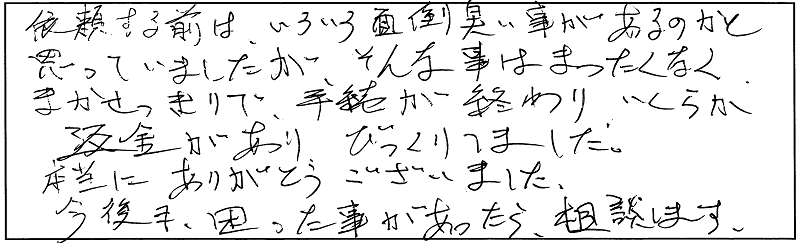 依頼する前は、いろいろ面倒臭い事があるのかと
思っていましたが、そんな事はまったくなく
まかせっきりで、手続が終わり いくらか、
返金があり びっくりしました。
本当に ありがとう ございました、
今後も、困った事があったら、相談します、